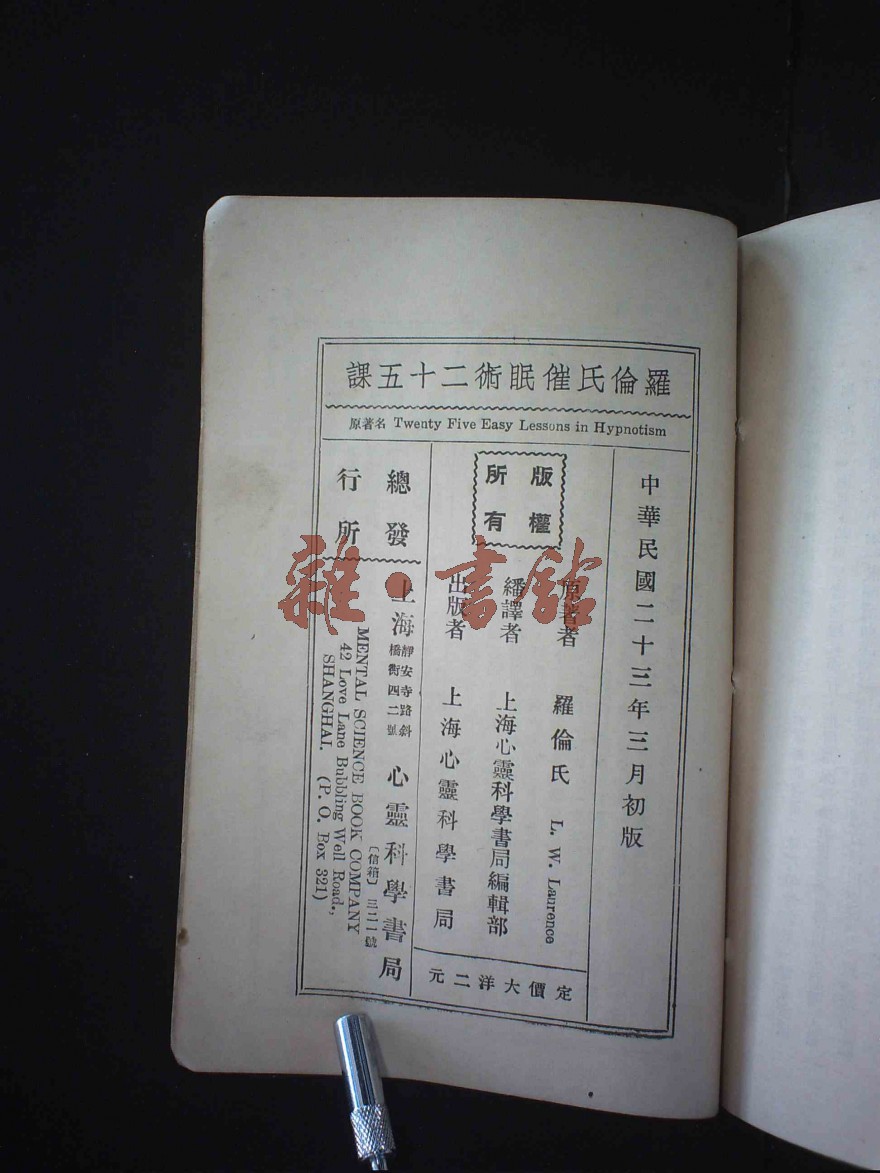 羅倫氏催眠術二十五課
原著名 Twenty Five Easy Lessons in Hypnotism
中華民國二十三年三月初版
版權
所有
原著者 羅倫氏 L. W. Laurence
繙譯者 上海心靈科學書局編輯部
出版者 上海心靈科學書局
定價大洋二元
總發
行所
上海 靜安寺路斜
橋衖四二號
心靈科學書局
〔信箱〕三二一號
MENTAL SCIENCE BOOK COMPANY
42 Love Lane Bubbling Well Road.,
SHANGHAI. (P. O. Box 321)
雜·書館